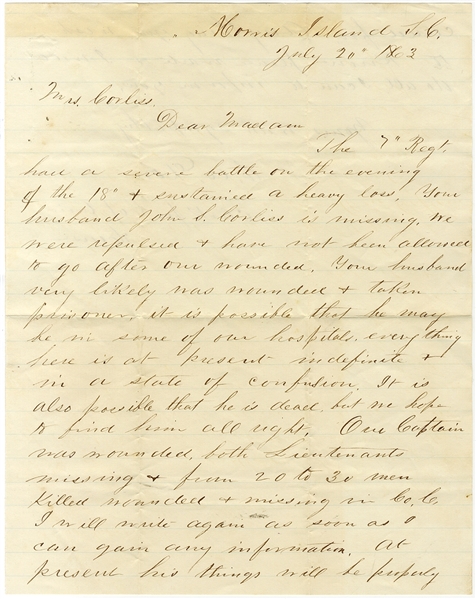 Morris Island S.C.
July 20" 1863
Mrs. Corliss,
Dear Madam
The 7" Regt.
had a severe battle on the evening
of the 18" & sustained a heavy loss. Your
husband John S. Corliss is missing. We
were repulsed & have not been allowed
to go after our wounded. Your husband
very likely was wounded & taken
prisoner. it is possible that he may
be in some of our hospitals, everything
here is at present indefinite &
in a state of confusion. It is
also possible that he is dead, but we hope
to find him all right. Our Captain
was wounded, both Lieutenants
missing & from 20 to 30 men
killed wounded & missing in Co. C.
I will write again as soon as I
can gain any information. At
present his things will be properly